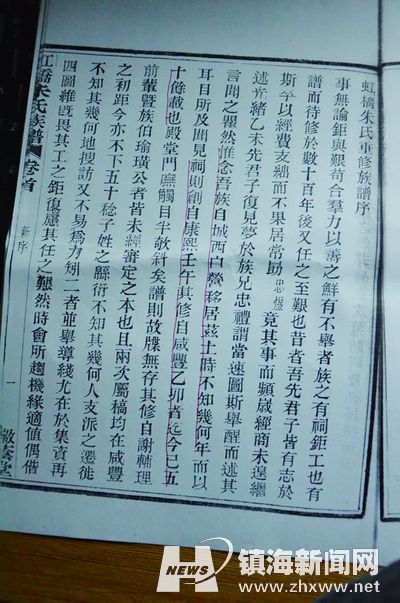 虹橋朱氏重修族譜序
事無論鉅與艱苟合羣力以籌之鮮有不舉者族之有祠鉅工也有
譜而待修於數十百年後又任之至艱也昔者吾先君子皆有志於
斯孚以經費支絀而不果居常勖忠煜竟其事而頻歲經商未遑繼
述光緒乙未先君子復見夢於族兄忠禮謂當速圖斯舉醒而述其
言聞之瞿然惟念吾族自城西白鶯移居茲土時不知幾何年而以
耳目所及聞見祠則創自康熙壬午其修自咸豐乙卯者迄今已五
十餘載也殿堂門廡觸目半敧斜矣譜則故牒無存其修自謝輔理
前輩暨族伯瑜璜公者皆未經審定之本也且兩次屬稿均在咸豐
之初距今亦不下五十稔子姓之繇衍不知其幾何人支派之遷徙
不知其幾何地搜訪又不易為力矧二者並舉導綫尤在於集資再
四圖維旣畏其工之鉅復慮其任之艱然時會所趨機緣適値偶偕
虹橋朱氏族譜 卷首
新序
一
敬
堂
NEWS
镇海新闻网
www.zhxww.net